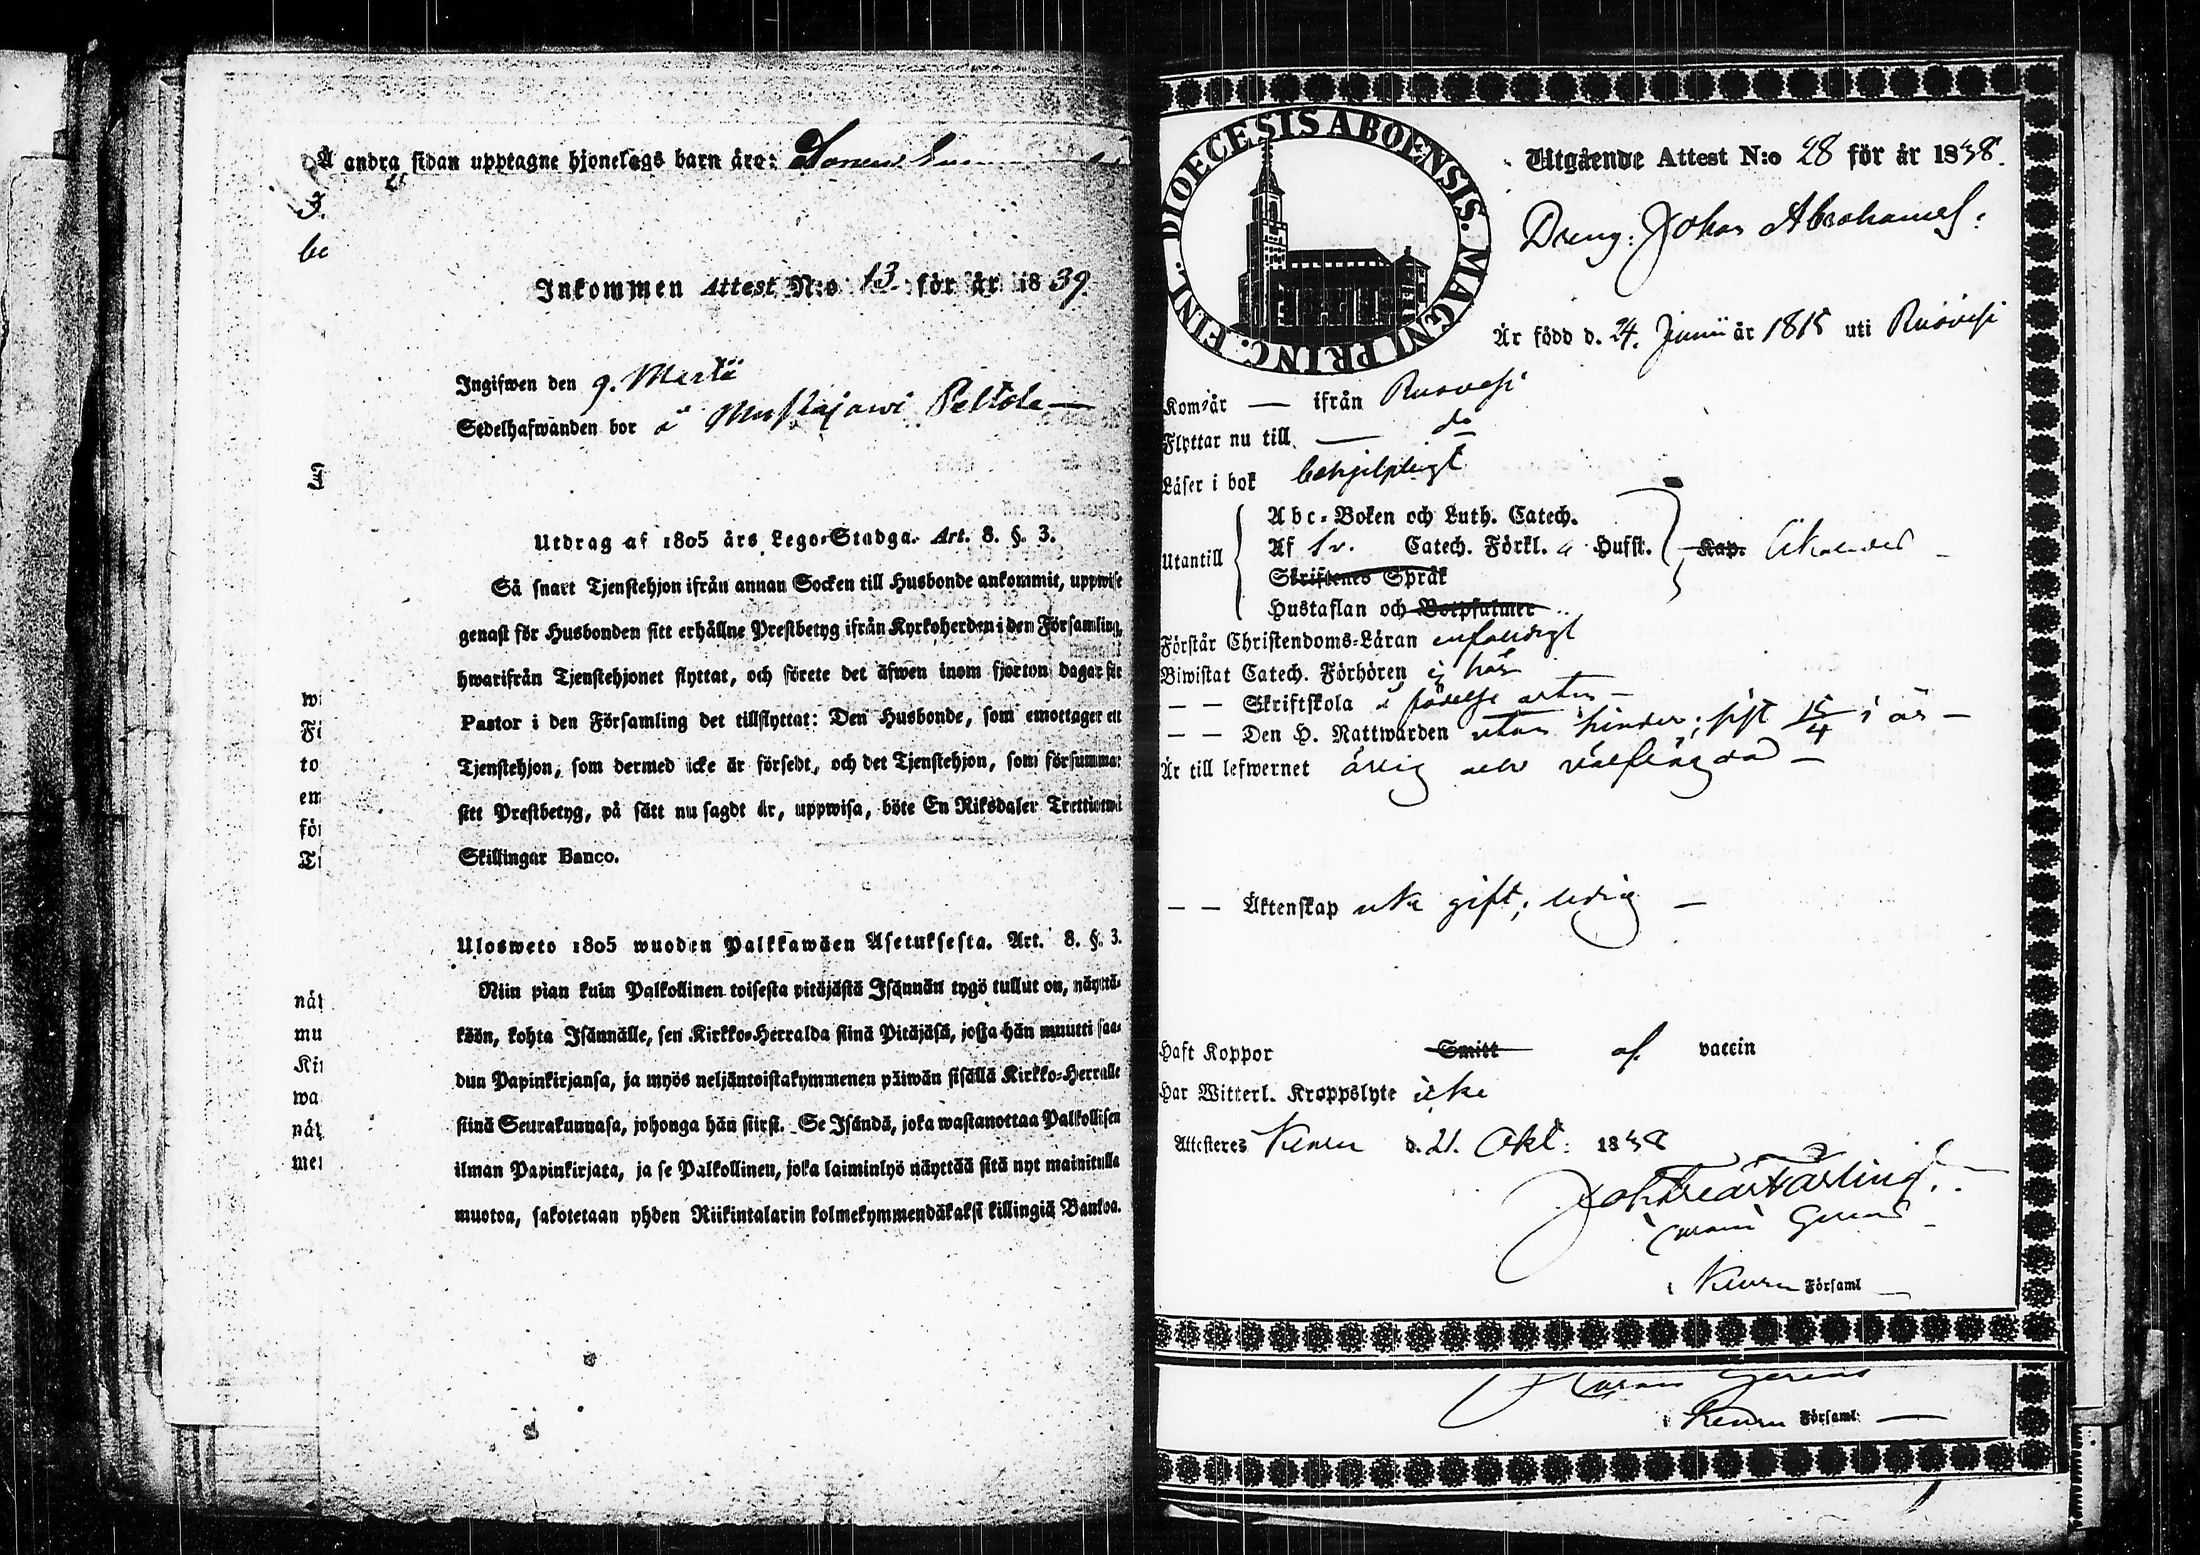 Å andra sidan upptagne hjonelags barn äro:
3.
be
Inkommen Attest N:o 13. för år 1839.
Ingifwen den 9. Martii
Sedelhafwanden bor å Mustajärwi Peltola —
I
Utdrag af 1805 års Lego-Stadga. Art. 8. §. 3.
Så snart Tjenstehjon ifrån annan Socken till Husbonde ankommit, uppwise
genast för Husbonden sitt erhållne Prestbetyg ifrån Kyrkoherden i den Församling,
hwarifrån Tjenstehjonet flyttat, och förete det äfwen inom fjorton dagar för
Pastor i den Församling det tillflyttat: Den Husbonde, som emottager ett
Tjenstehjon, som dermed icke är försedt, och det Tjenstehjon, som försummar
sitt Prestbetyg, på sätt nu sagdt är, uppwisa, böte En Riksdaler Trettiotwå
Skillingar Banco.
Ulosweto 1805 wuoden Palkkawäen Asetuksesta. Art. 8. §. 3.
Niin pian kuin Palkollinen toisesta pitäjästä Isännän tygö tullut on, näyttä-
köön, kohta Isännälle, sen Kirkko-Herralda siinä Pitäjäsä, josta hän muutti saa-
dun Papinkirjansa, ja myös neljäntoistakymmenen päiwän sisällä Kirkko-Herralle
siinä Seurakunnasa, johonga hän siirsi. Se Isändä, joka wastanottaa Palkollisen
ilman Papinkirjata, ja se Palkollinen, joka laiminlyö näyttää sitä nyt mainitulla
muotoa, sakotetaan yhden Riikintalarin kolmekymmendäkaksi killingiä Bankoa.
DIOECESIS ABOENSIS. MAGNI PRINC. FINL.
Utgående Attest N:o 28 för år 1838.
Dreng. Johan Abrahams.
Är född d. 24. Junii år 1815 uti Ruovesi
Kom år — ifrån Ruovesi
Flyttar nu till — do
Läser i bok behjelpligt
Utantill
Abc-Boken och Luth. Catech.
Af Sv. Catech. Förkl. a Hufst. Kap.
Skriftenes Språk
Hustaflan och Botpsalmer
Förstår Christendoms-Läran enfaldigt
Biwistat Catech. Förhören ej här
— — Skriftskola i födelse orten —
— — Den H. Nattwarden utan hinder; sist 15/4 i år —
Är till lefwernet ärlig och välfrägdad —
— — Äktenskap icke gift; ledig —
Haft Koppor Smitt af vaccin
Har Witterl. Kroppslyte icke
Attesteres Keuru d. 21. Okt: 1838
i Keuru Församl —
i Keuru Församl: —
wi
Fi
to
em
för
Ti
näh
mu
Kir
wa
näh
mes